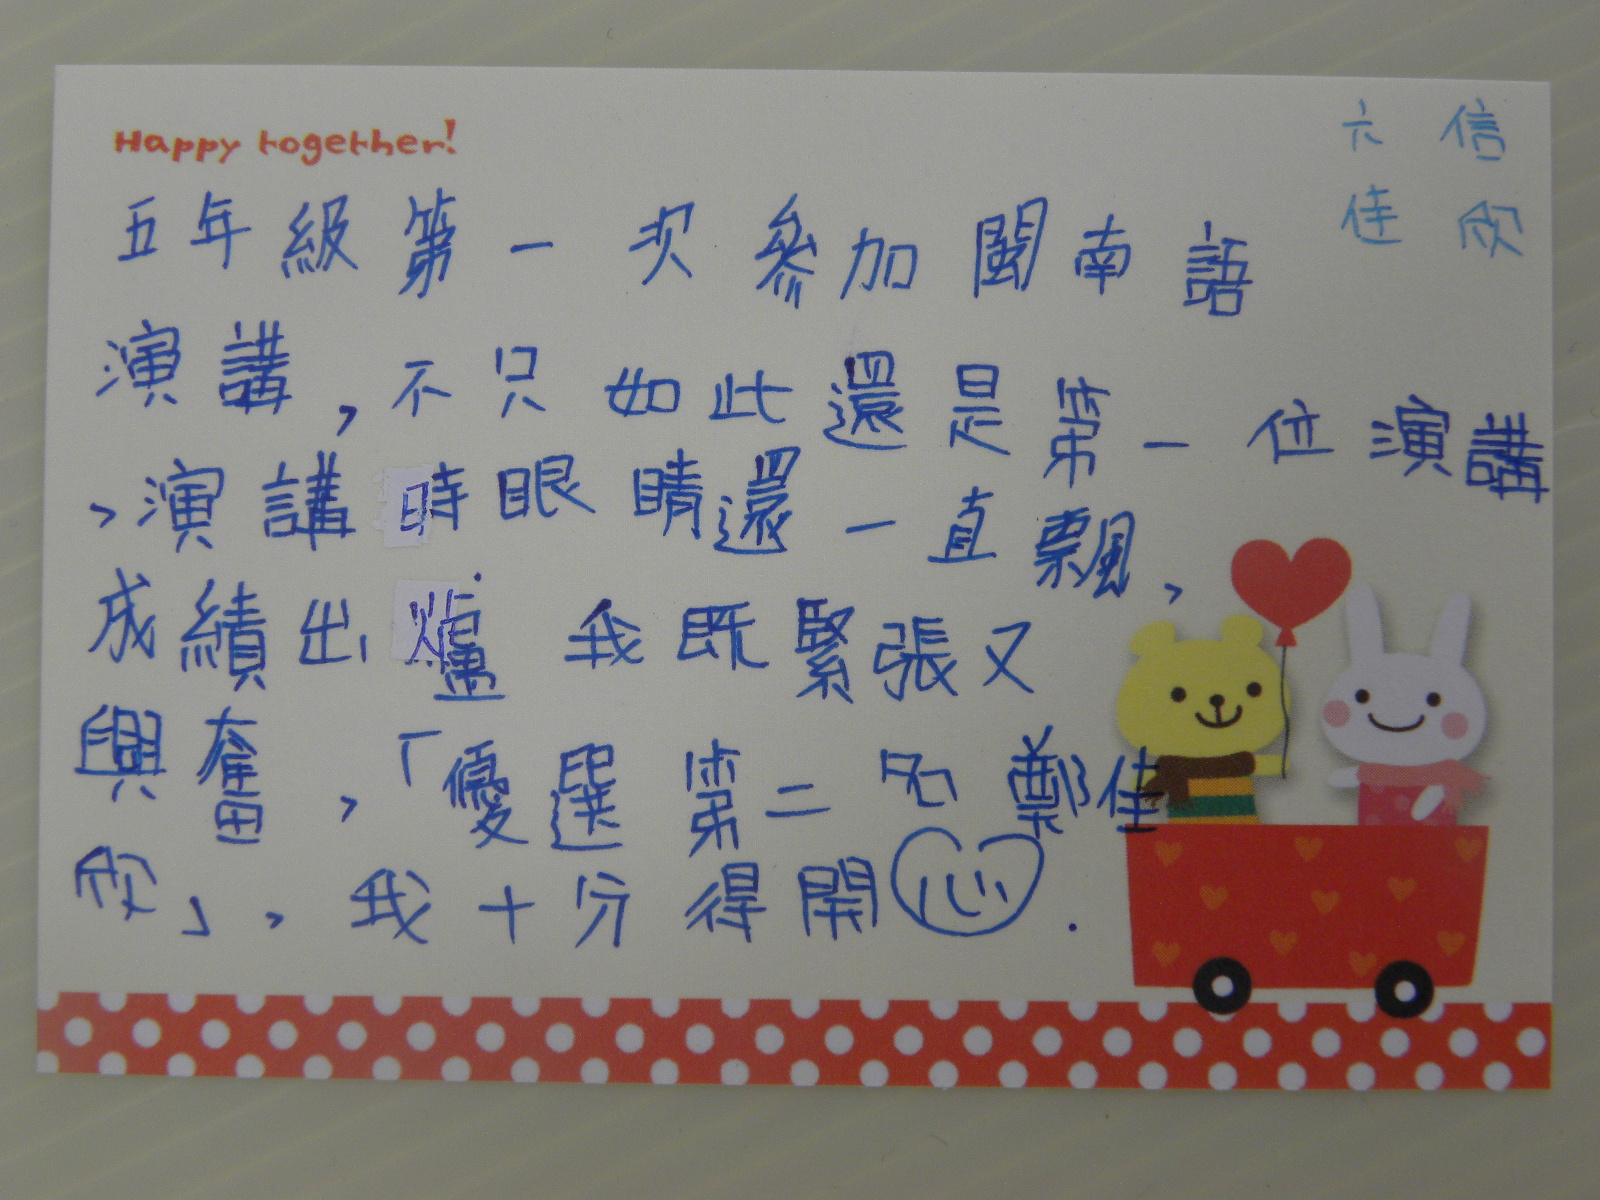 Happy together!
六 信
佳 欣
五年級第一次參加閩南語
演講,不只如此還是第一位演講
,演講時眼睛還一直飄,
成績出爐 我既緊張又
興奮,「優選第二名鄭佳
欣」,我十分得開心.